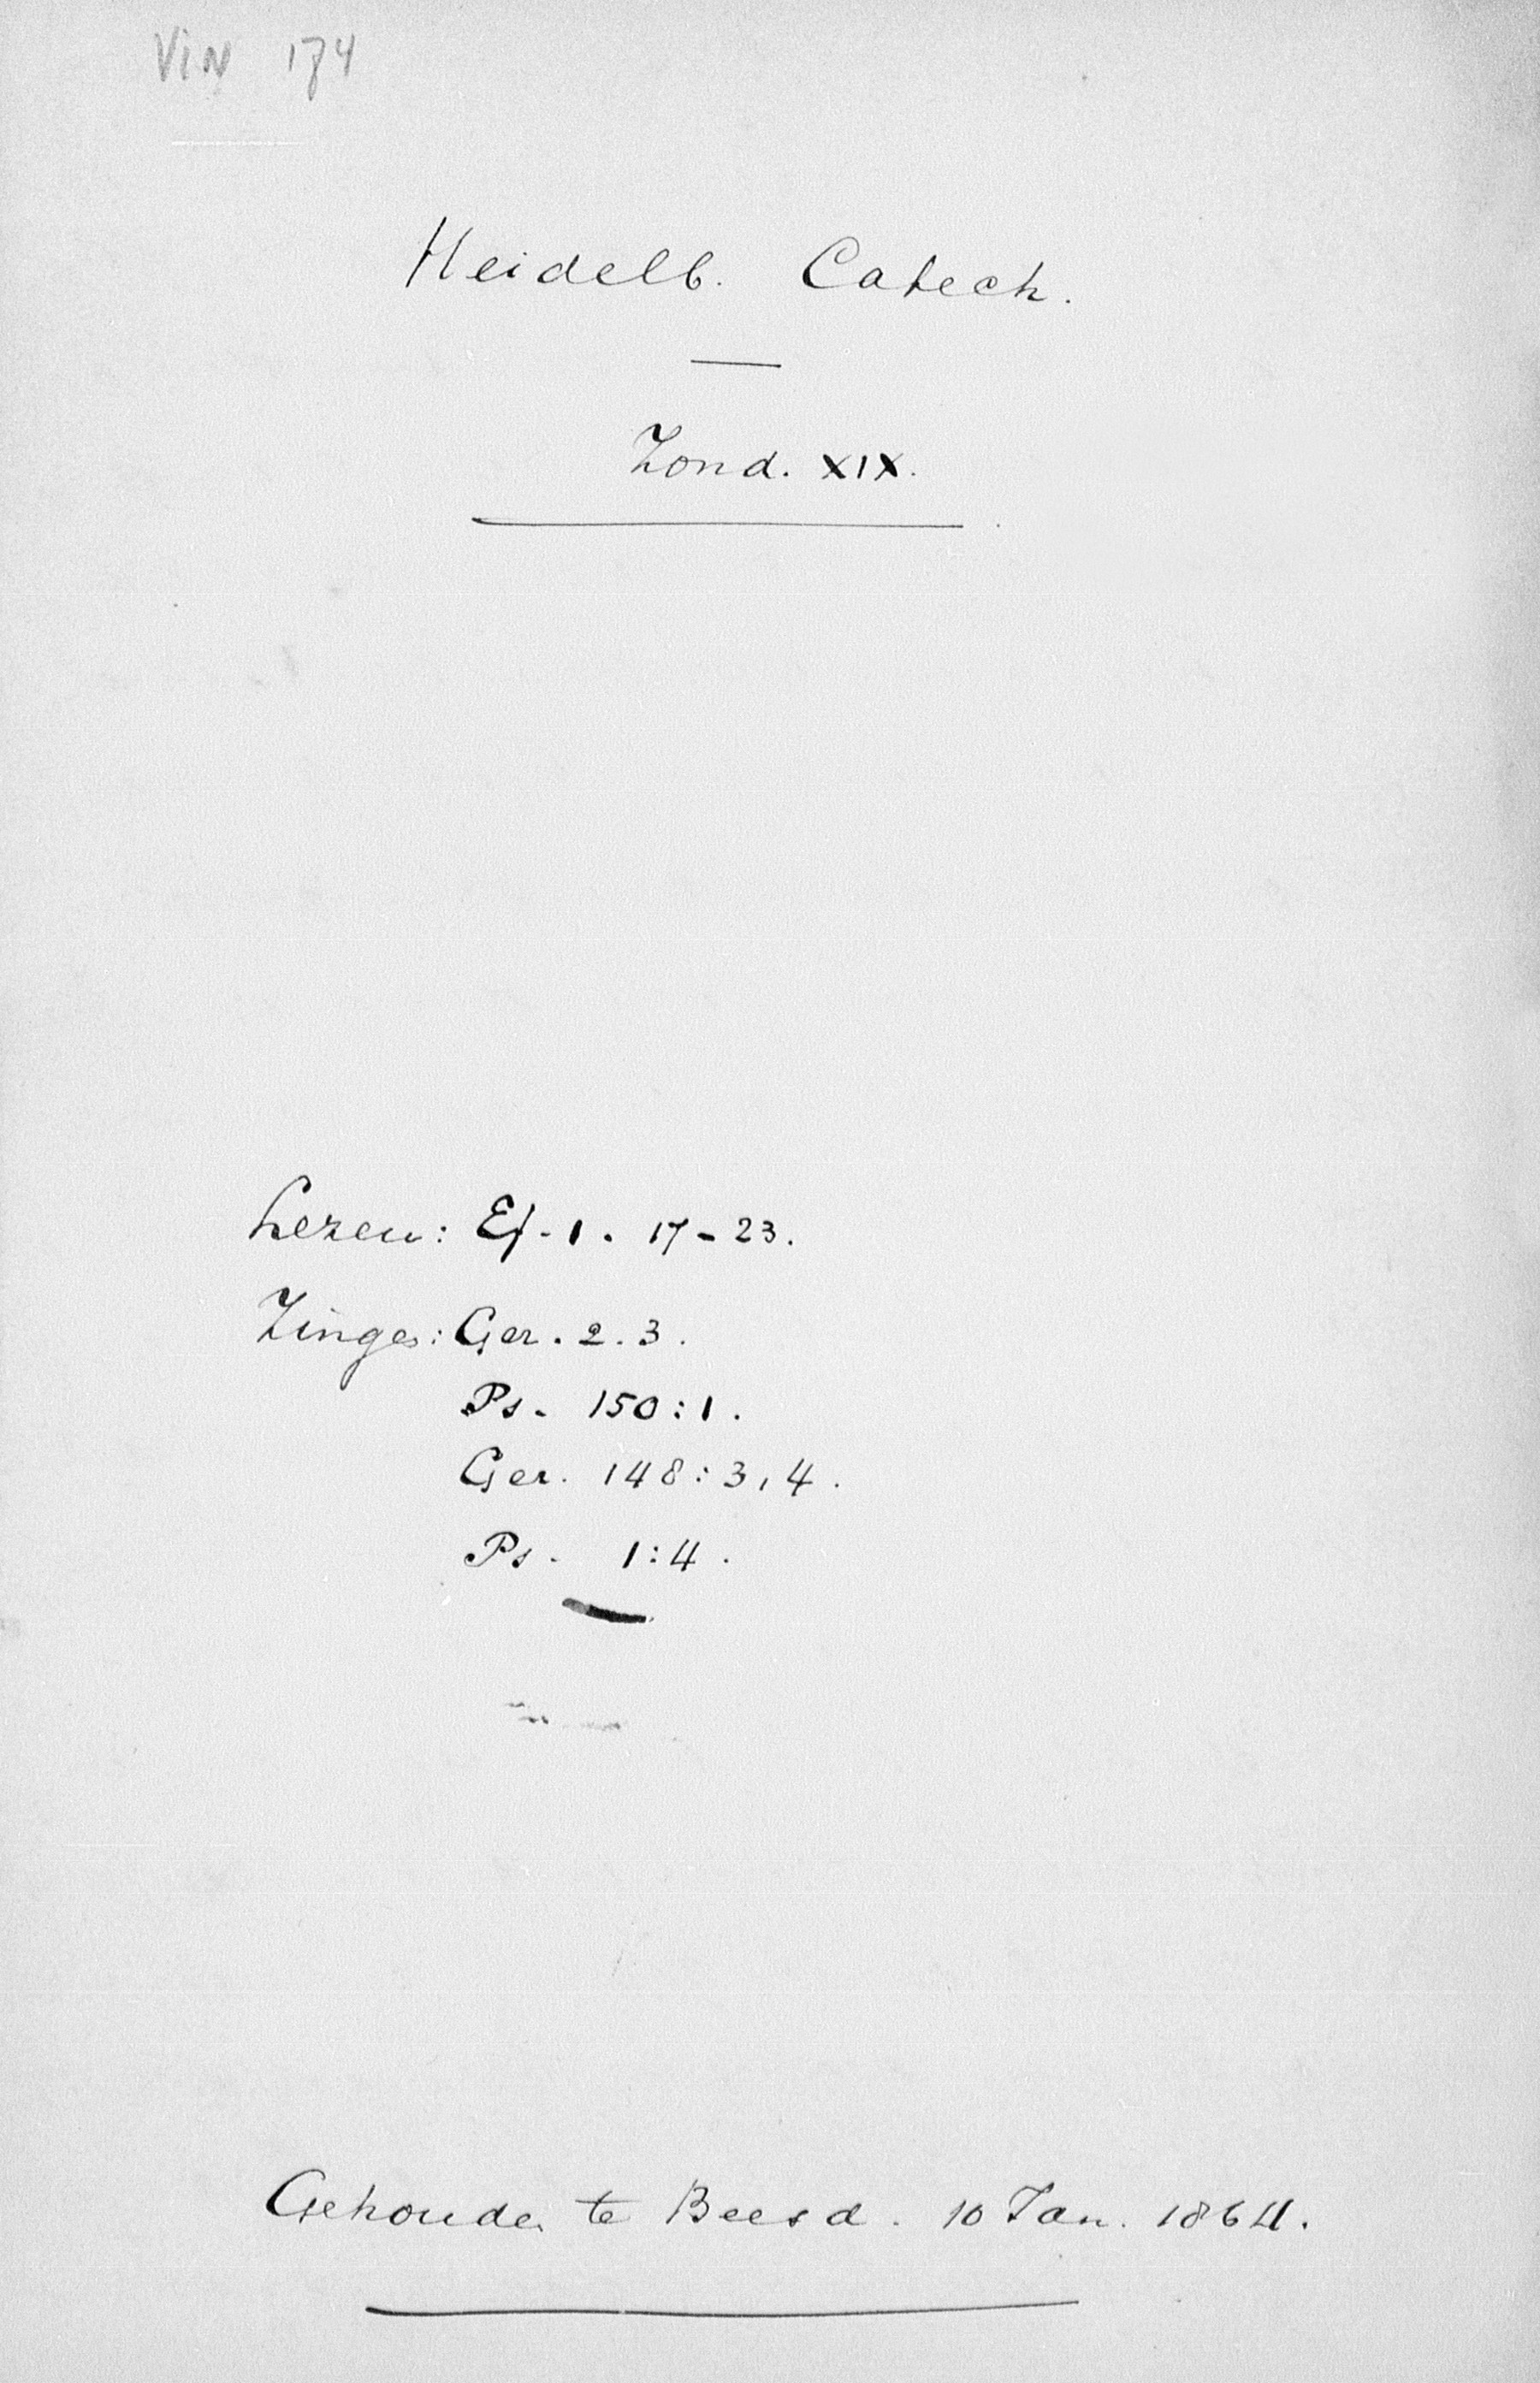 VIN 174
Heidelb. Catech.
Zond. XIX.
Lezen: Ef. 1. 17-23.
Zingen: Gez. 2.3.
Ps. 150:1.
Gez. 148:3,4.
Ps. 1:4.
Gehouden te Beesd. 10 Jan. 1864.